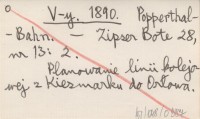 V-y. 1890. Popperthal-
-Bahn. — Zipser Bote 28,
nr 13: 2.
Planowanie linii kolejo-
wej z Kiezmarku do Orłowa.